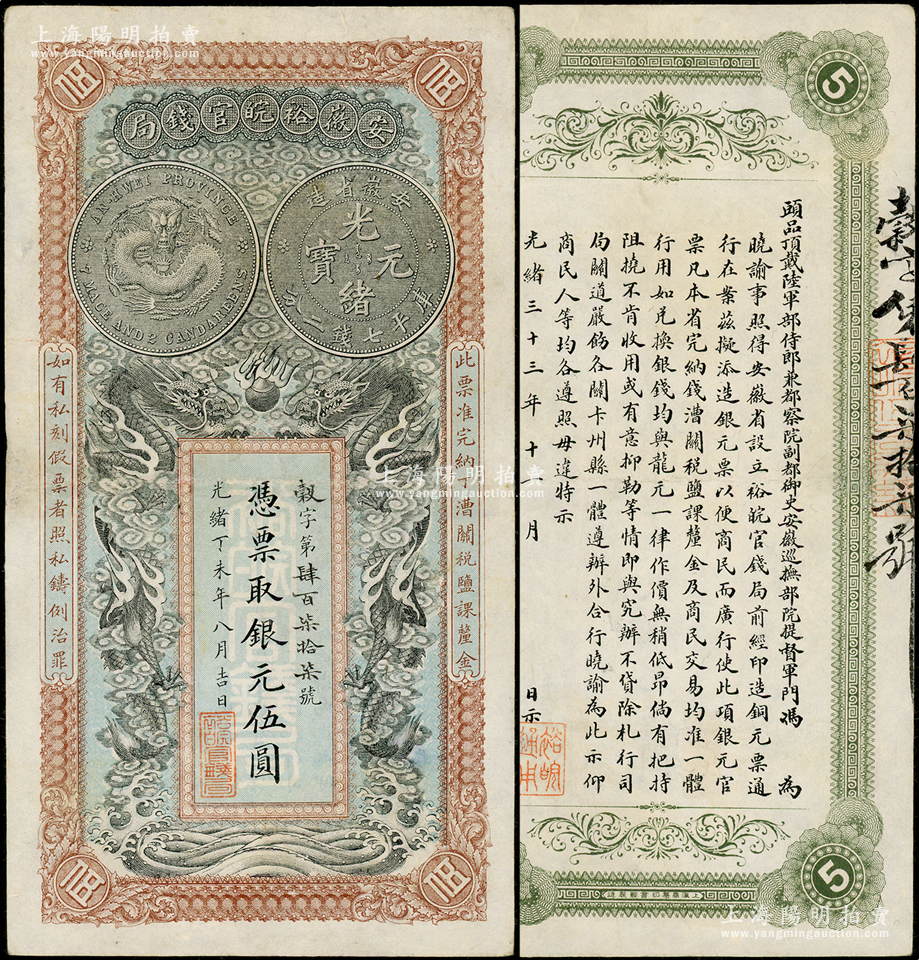 上海陽明拍賣
www.yangmingauction.com
伍
伍
安徽裕皖官錢局
AN-HWEI PROVINCE
7 MACE AND 2 CANDAREENS
安徽省造
光緒元寶
庫平七錢二分
此票准完納漕關稅鹽課釐金
如有私刻假票者照私鑄例治罪
穀字第肆百柒拾柒號
憑票取銀元伍圓
光緒丁未年八月吉日
上海陽明拍賣
www.yangmingauction.com
伍
伍
5
頭品頂戴陸軍部侍郎兼都察院副都御史安徽巡撫部院提督軍門馮 為
曉諭事照得安徽省設立裕皖官錢局前經印造銅元票通
行在案茲擬添造銀元票以便商民而廣行使此項銀元官
票凡本省完納錢漕關稅鹽課釐金及商民交易均准一體
行用如兌換銀錢均與龍元一律作價無稍低昂倘有把持
阻撓不肯收用或有意抑勒等情即與究辦不貸除札行司
局關道嚴飭各關卡州縣一體遵辦外合行曉諭為此示仰
商民人等均各遵照毋違特示
光緒三十三年十月 日示
5
上海陽明拍賣
www.yangmingauction.com